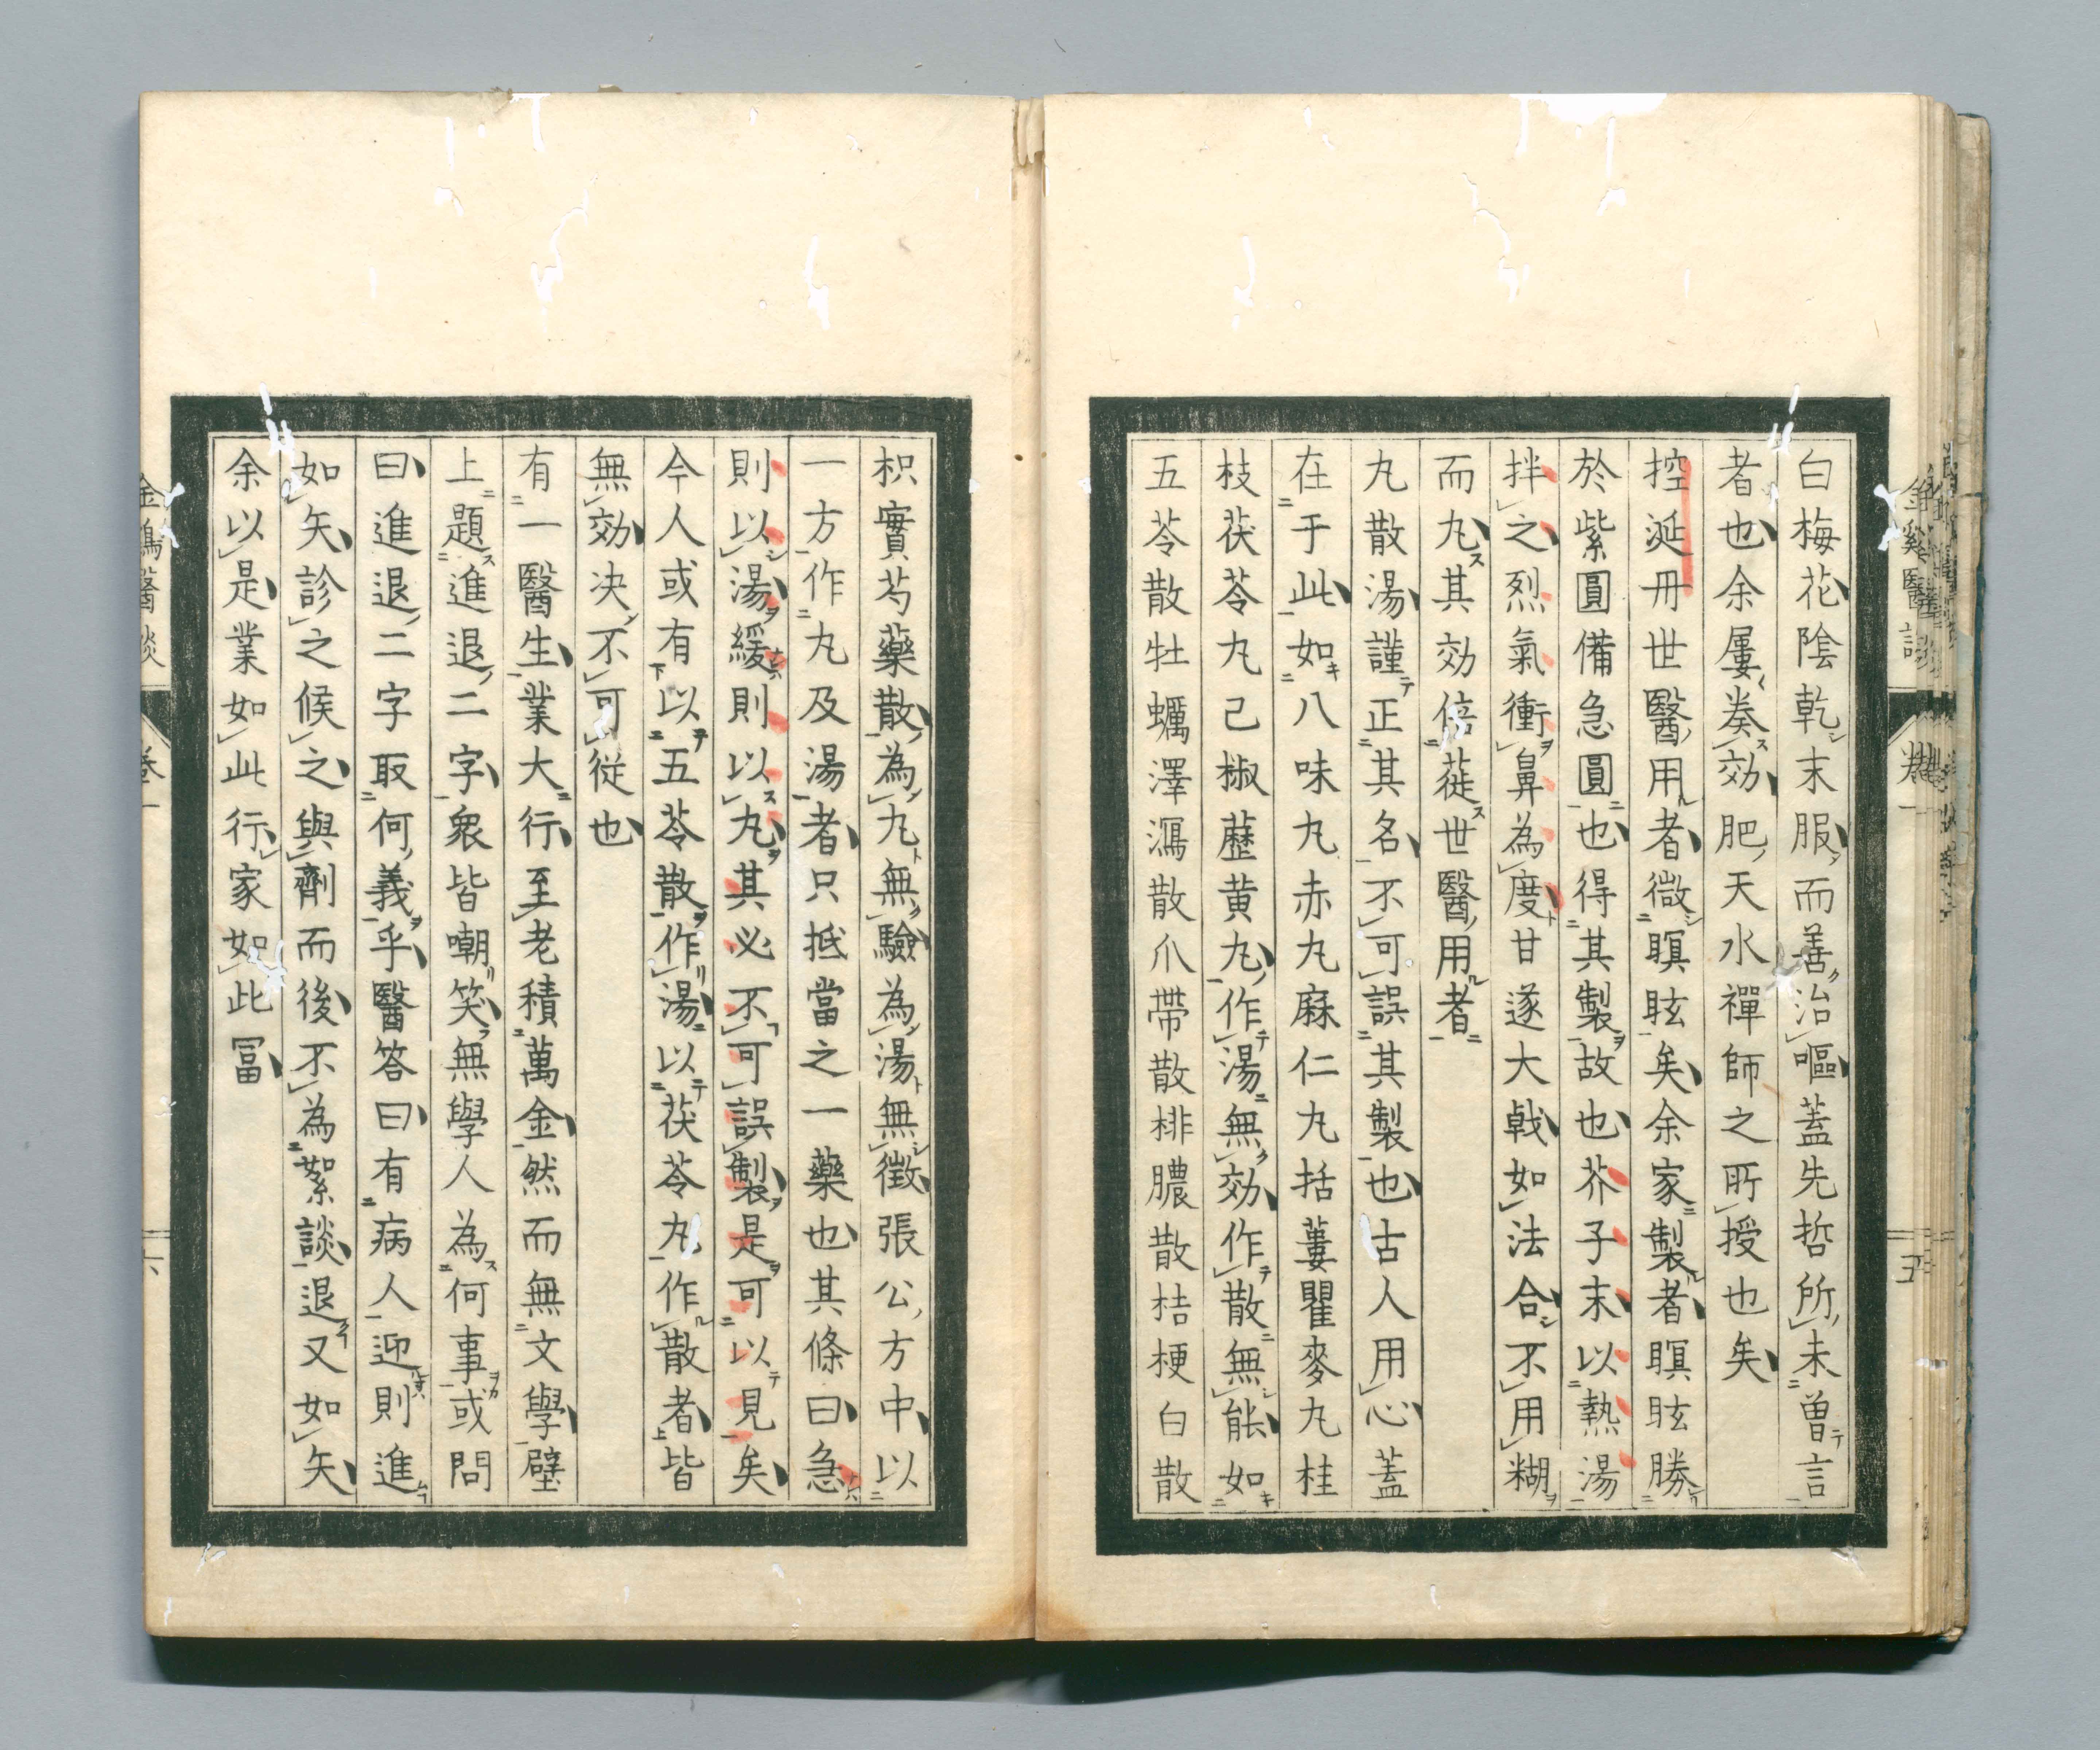 白梅花陰乾末服而善治嘔蓋先哲所未曽言
者也余屢奏効肥天水禪師之所授也矣
控涎丹世醫用者微瞑眩矣余家製者瞑眩勝
於紫圓備急圓也得其製故也芥子末以熱湯
拌之烈氣衝鼻為度甘遂大戟如法合不用糊
而丸其効倍蓰世醫用者
丸散湯謹正其名不可誤其製也古人用心蓋
在于此如八味丸赤丸麻仁丸括蔞瞿麥丸桂
枝茯苓丸己椒藶黄丸作湯無効作散無能如
五苓散牡蠣澤瀉散爪帶散排膿散桔梗白散
枳實芍藥散為丸無驗為湯無徴張公方中以
一方作丸及湯者只抵當之一藥也其條曰急
則以湯緩則以丸其必不可誤製是可以見矣
今人或有以五苓散作湯以茯苓丸作散者皆
無効决不可従也
有一醫生業大行至老積萬金然而無文學壁
上題進退二字衆皆嘲笑無學人為何事或問
曰進退二字取何義乎醫答曰有病人迎則進
如矢診之候之與劑而後不為絮談退又如矢
余以是業如此行家如此冨